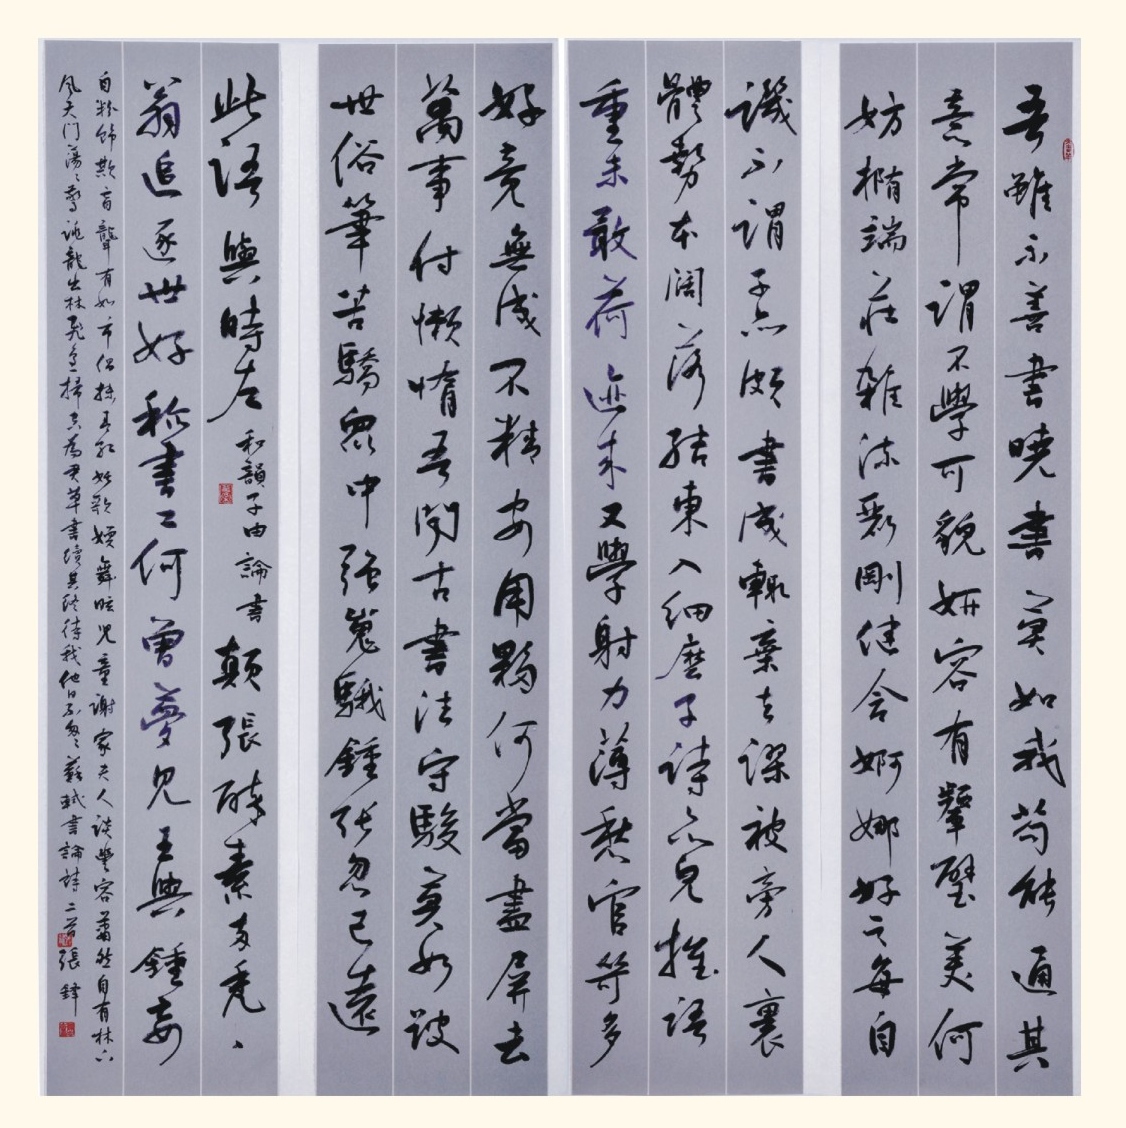 吾雖不善書曉書莫如我苟能通其
意常謂不學可貌妍容有顰璧美何
妨橢端莊雜流麗剛健含婀娜好之每自
譏不謂子亦頗書成輒棄去謬被旁人裹
體勢本闊落結束入細麼子詩亦見推語
重未敢荷迩来又學射力薄愁官笴多
好竟無成不精安用夥何當盡屏去
萬事付懶惰吾聞古書法守駿莫如跛
世俗筆苦驕眾中強嵬騀鍾張忽已遠
此語與時左 和韻子由論書 顛張醉素兩禿
翁追逐世好稱書工何曾夢見王與鍾妄
自粉飾欺盲聾有如市倡抹青紅妖歌嫚舞眩兒童謝家夫人談豐容蕭然自有林下
風天门蕩〻驚跳龍出林飛鳥一掃空為君草書續其終待我他日不匆〻蘇軾書論詩二首 張